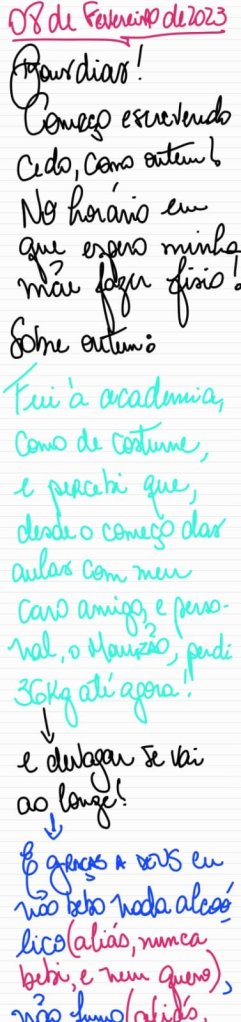 08 de Fevereiro de 2023
Bons dias!
Começo escrevendo
cedo, como ontem!
No horário em
que espero minha
mãe fazer fisio!
Sobre ontem:
Fui à academia,
como de costume,
e percebi que,
desde o começo das
aulas com meu
caro amigo, e perso-
nal, o Maurizão, perdi
36Kg até agora!
e devagar se vai
ao longe!
E GRAÇAS A DEUS eu
não bebo nada alcoó
lico (aliás, nunca
bebi, e nem quero),
não fumo (aliás,